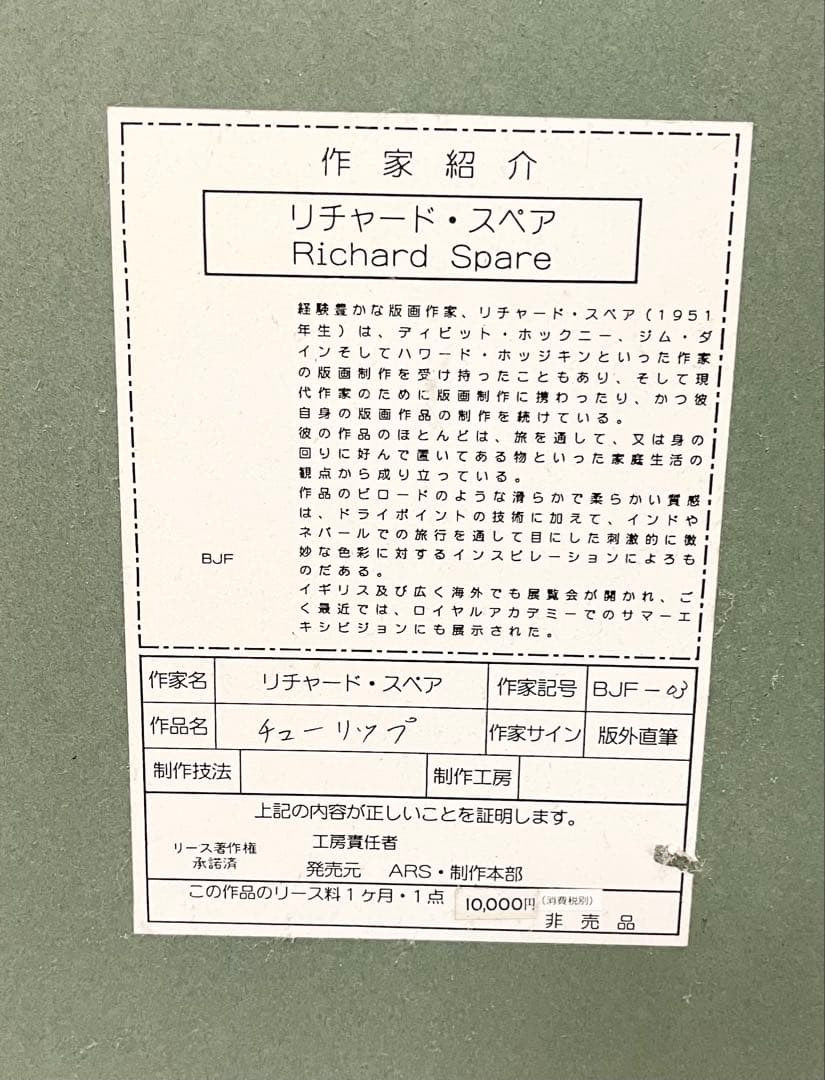 作家紹介
リチャード・スペア
Richard Spare
経験豊かな版画作家、リチャード・スペア(1951
年生)は、ディビット・ホックニー、ジム・ダ
インそしてハワード・ホッジキンといった作家
の版画制作を受け持ったこともあり、そして現
代作家のために版画制作に携わったり、かつ彼
自身の版画作品の制作を続けている。
彼の作品のほとんどは、旅を通して、又は身の
回りに好んで置いてある物といった家庭生活の
観点から成り立っている。
作品のビロードのような滑らかで柔らかい質感
は、ドライポイントの技術に加えて、インドや
ネパールでの旅行を通して目にした刺激的に微
妙な色彩に対するインスピレーションによろも
のだある。
イギリス及び広く海外でも展覧会が開かれ、ご
く最近では、ロイヤルアカデミーでのサマーエ
キシビジョンにも展示された。
BJF
作家名 リチャード・スペア 作家記号 BJF-03
作品名 チューリップ 作家サイン 版外直筆
制作技法 制作工房
上記の内容が正しいことを証明します。
リース著作権 工房責任者
承諾済 発売元 ARS・制作本部
この作品のリース料1ヶ月・1点 10,000円(消費税別)
非売品